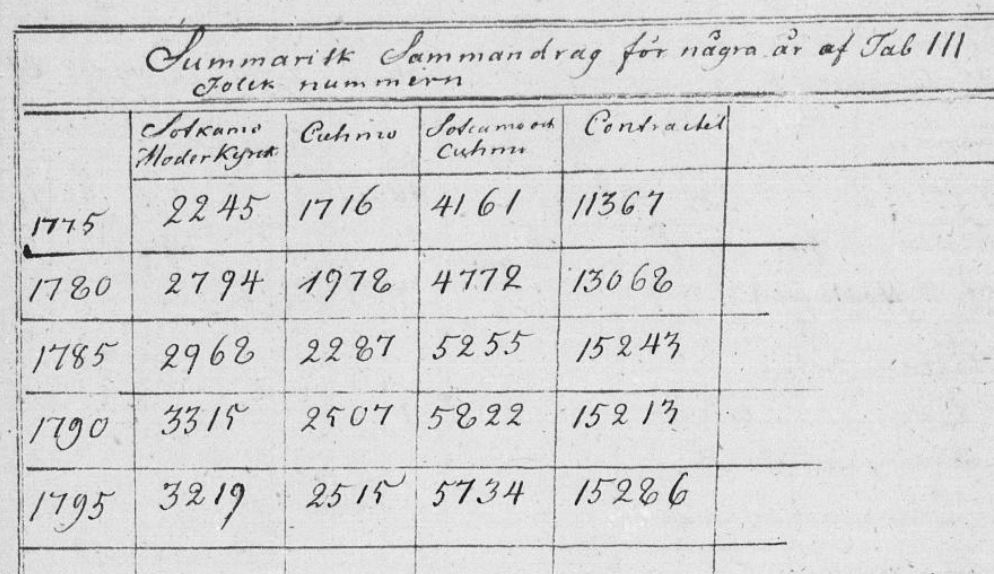 Summarisk Sammandrag för några år af Tab III
Folck nummern
Sotkamo Cuhmo Sotcamo och Contractet
Moder Kyrck Cuhmo
1775 2245 1716 4161 11367
1780 2794 1978 4772 13068
1785 2968 2287 5255 15243
1790 3315 2507 5822 15213
1795 3219 2515 5734 15286